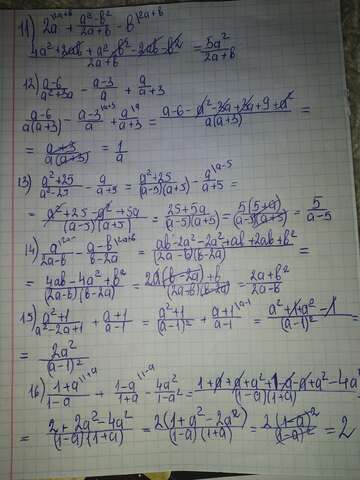 11) 2a^{\2a+b} + (a²-b²)/(2a+b) - b^{\2a+b}
(4a²+2ab+a²-b²-2ab-b²)/(2a+b) = 5a²/(2a+b)
12) (a-6)/(a²+3a) - (a-3)/a + a/(a+3)
(a-6)/(a(a+3)) - (a-3)/a^{\a+3} + a/(a+3)^{\a} = (a-6-a²-3a+3a+9+a²)/(a(a+3)) =
= (a+3)/(a(a+3)) = 1/a
13) (a²+25)/(a²-25) - a/(a+5) = (a²+25)/((a-5)(a+5)) - a/(a+5)^{\a-5} =
= (a²+25-a²+5a)/((a-5)(a+5)) = (25+5a)/((a-5)(a+5)) = 5(5+a)/((a-5)(a+5)) = 5/(a-5)
14) a/(2a-b) - (a-b)/(b-2a) = (ab-2a²-2a²+ab+2ab+b²)/((2a-b)(b-2a)) =
= (4ab-4a²+b²)/((2a-b)(b-2a)) = (2a(b-2a)+b²)/((2a-b)(b-2a)) = (2a+b²)/(2a-b)
15) (a²+1)/(a²-2a+1) + (a+1)/(a-1) = (a²+1)/(a-1)² + (a+1)/(a-1)^{\a-1} = (a²+1+a²-1)/(a-1)² =
= 2a²/(a-1)²
16) (1+a)/(1-a)^{\1+a} + (1-a)/(1+a)^{\1-a} - 4a²/(1-a²) = (1+a+a+a²+1-a-a+a²-4a²)/((1-a)(1+a))
= (2+2a²-4a²)/((1-a)(1+a)) = 2(1+a²-2a²)/((1-a)(1+a)) = 2(1-a)²/(1-a)² = 2